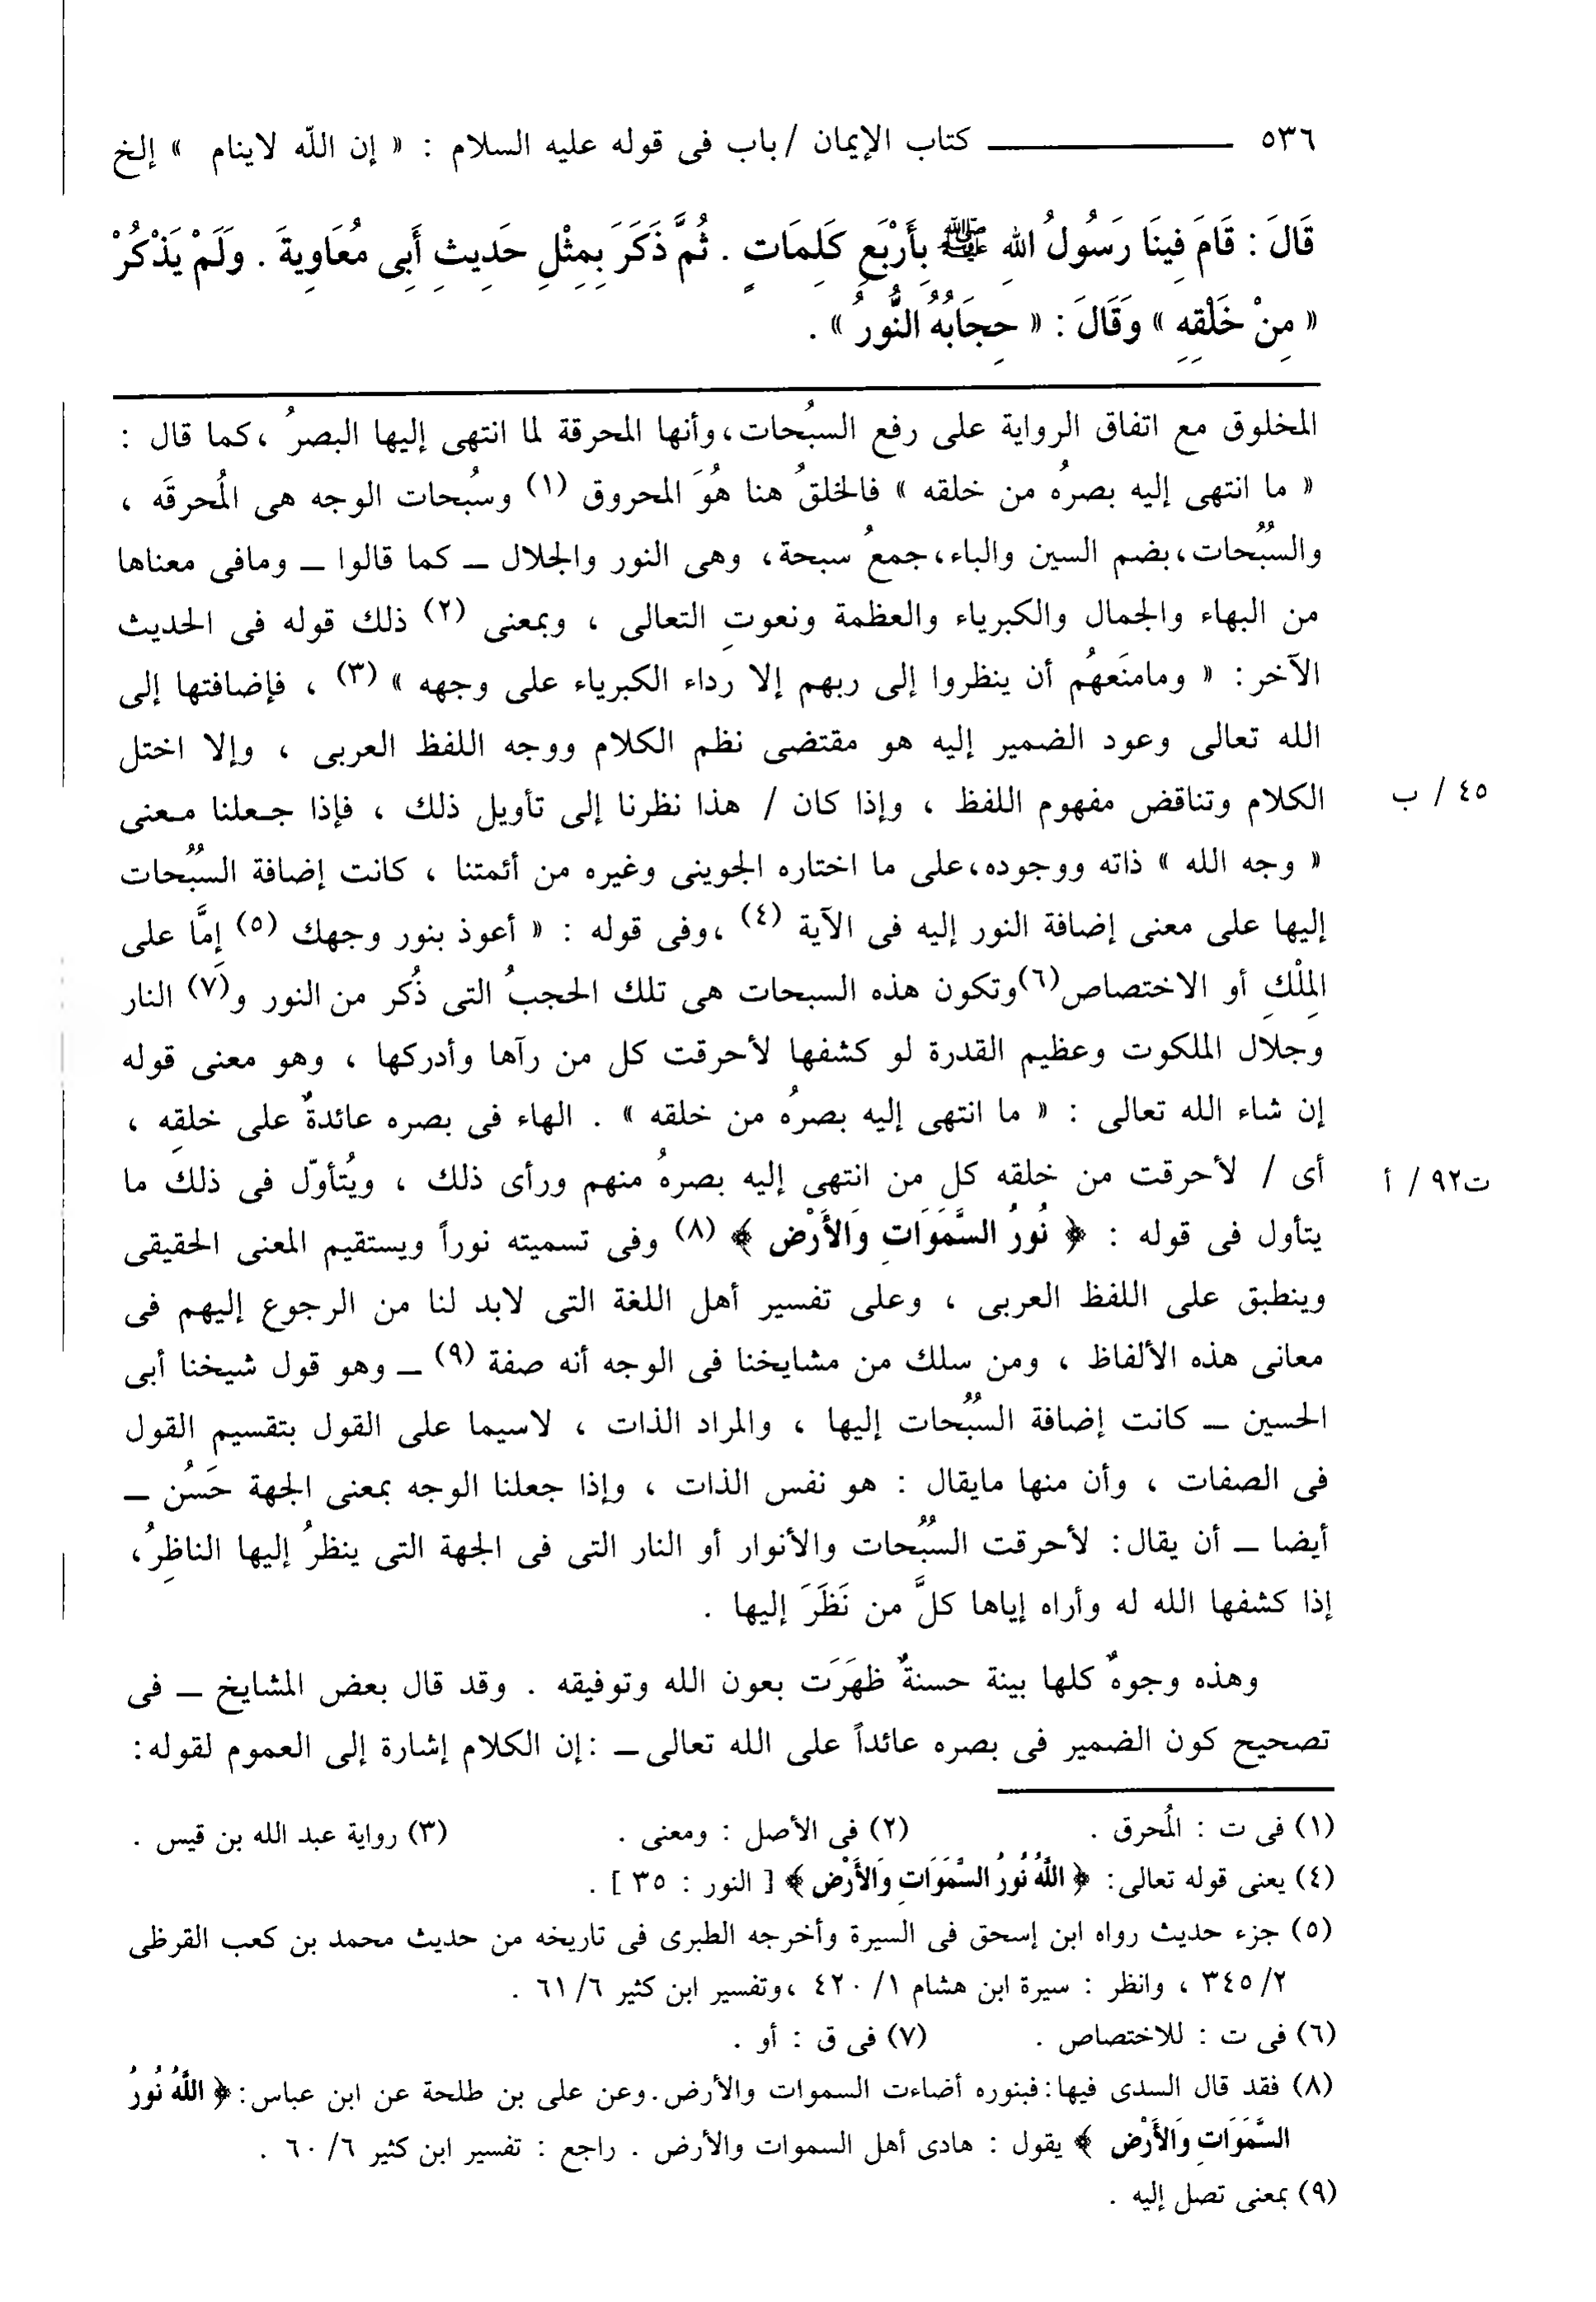 ٥٣٦ ـــــــ كتاب الإيمان / باب فى قوله عليه السلام : « إن الله لاينام » إلخ
قَالَ : قَامَ فِينَا رَسُولُ اللهِ ﷺ بِأَرْبَعِ كَلِمَاتٍ . ثُمَّ ذَكَرَ بِمِثْلِ حَدِيثِ أَبِى مُعَاوِيةَ . وَلَمْ يَذْكُرْ
« مِنْ خَلْقِهِ » وَقَالَ : « حِجَابُهُ النُّورُ » .
المخلوق مع اتفاق الرواية على رفع السبُحات ، وأنها المحرقة لما انتهى إليها البصرُ ، كما قال :
« ما انتهى إليه بصرُه من خلقه » فالخلقُ هنا هُوَ المحروق (١) وسبُحات الوجه هى المُحرقَه ،
والسُبُحات ، بضم السين والباء ، جمعُ سبحة ، وهى النور والجلال ــ كما قالوا ــ ومافى معناها
من البهاء والجمال والكبرياء والعظمة ونعوتِ التعالى ، وبمعنى (٢) ذلك قوله فى الحديث
الآخر : « ومامنَعهُم أن ينظروا إلى ربهم إلا رداء الكبرياء على وجهه » (٣) ، فإضافتها إلى
الله تعالى وعود الضمير إليه هو مقتضى نظم الكلام ووجه اللفظ العربى ، وإلا اختل
الكلام وتناقض مفهوم اللفظ ، وإذا كان / هذا نظرنا إلى تأويل ذلك ، فإذا جعلنا معنى
٤٥ / ب
« وجه الله » ذاته ووجوده ، على ما اختاره الجوينى وغيره من أئمتنا ، كانت إضافة السُبُحات
إليها على معنى إضافة النور إليه فى الآية (٤) ، وفى قوله : « أعوذ بنور وجهك (٥) إمَّا على
المِلْكِ أو الاختصاص (٦) وتكون هذه السبحات هى تلك الحجبُ التى ذُكر من النور و(٧) النار
وجلال الملكوت وعظيم القدرة لو كشفها لأحرقت كل من رآها وأدركها ، وهو معنى قوله
إن شاء الله تعالى : « ما انتهى إليه بصرُه من خلقه » . الهاء فى بصره عائدةٌ على خلقِه ،
أى / لأحرقت من خلقه كل من انتهى إليه بصرهُ منهم ورأى ذلك ، ويُتأوّل فى ذلك ما
ت٩٢ / أ
يتأول فى قوله : ﴿ نُورُ السَّمَوَاتِ وَالأَرْضِ ﴾ (٨) وفى تسميته نوراً ويستقيم المعنى الحقيقى
وينطبق على اللفظ العربى ، وعلى تفسير أهل اللغة التى لابد لنا من الرجوع إليهم فى
معانى هذه الألفاظ ، ومن سلك من مشايخنا فى الوجه أنه صفة (٩) ــ وهو قول شيخنا أبى
الحسين ــ كانت إضافة السُبُحات إليها ، والمراد الذات ، لاسيما على القول بتقسيم القول
فى الصفات ، وأن منها مايقال : هو نفس الذات ، وإذا جعلنا الوجه بمعنى الجهة حَسُن ــ
أيضا ــ أن يقال : لأحرقت السُبُحات والأنوار أو النار التى فى الجهة التى ينظرُ إليها الناظِرُ ،
إذا كشفها الله له وأراه إياها كلَّ من نَظَرَ إليها .
وهذه وجوهٌ كلها بينة حسنةٌ ظهَرَت بعون الله وتوفيقه . وقد قال بعض المشايخ ــ فى
تصحيح كون الضمير فى بصره عائداً على الله تعالى ــ : إن الكلام إشارة إلى العموم لقوله :
(١) فى ت : المُحرق . (٢) فى الأصل : ومعنى . (٣) رواية عبد الله بن قيس .
(٤) يعنى قوله تعالى : ﴿ اللَّهُ نُورُ السَّمَوَاتِ وَالأَرْضِ ﴾ [ النور : ٣٥ ] .
(٥) جزء حديث رواه ابن إسحق فى السيرة وأخرجه الطبرى فى تاريخه من حديث محمد بن كعب القرظى
٢/ ٣٤٥ ، وانظر : سيرة ابن هشام ١/ ٤٢٠ ، وتفسير ابن كثير ٦/ ٦١ .
(٦) فى ت : للاختصاص . (٧) فى ق : أو .
(٨) فقد قال السدى فيها : فبنوره أضاءت السموات والأرض . وعن على بن طلحة عن ابن عباس : ﴿ اللَّهُ نُورُ
السَّمَوَاتِ وَالأَرْضِ ﴾ يقول : هادى أهل السموات والأرض . راجع : تفسير ابن كثير ٦/ ٦٠ .
(٩) بمعنى تصل إليه .